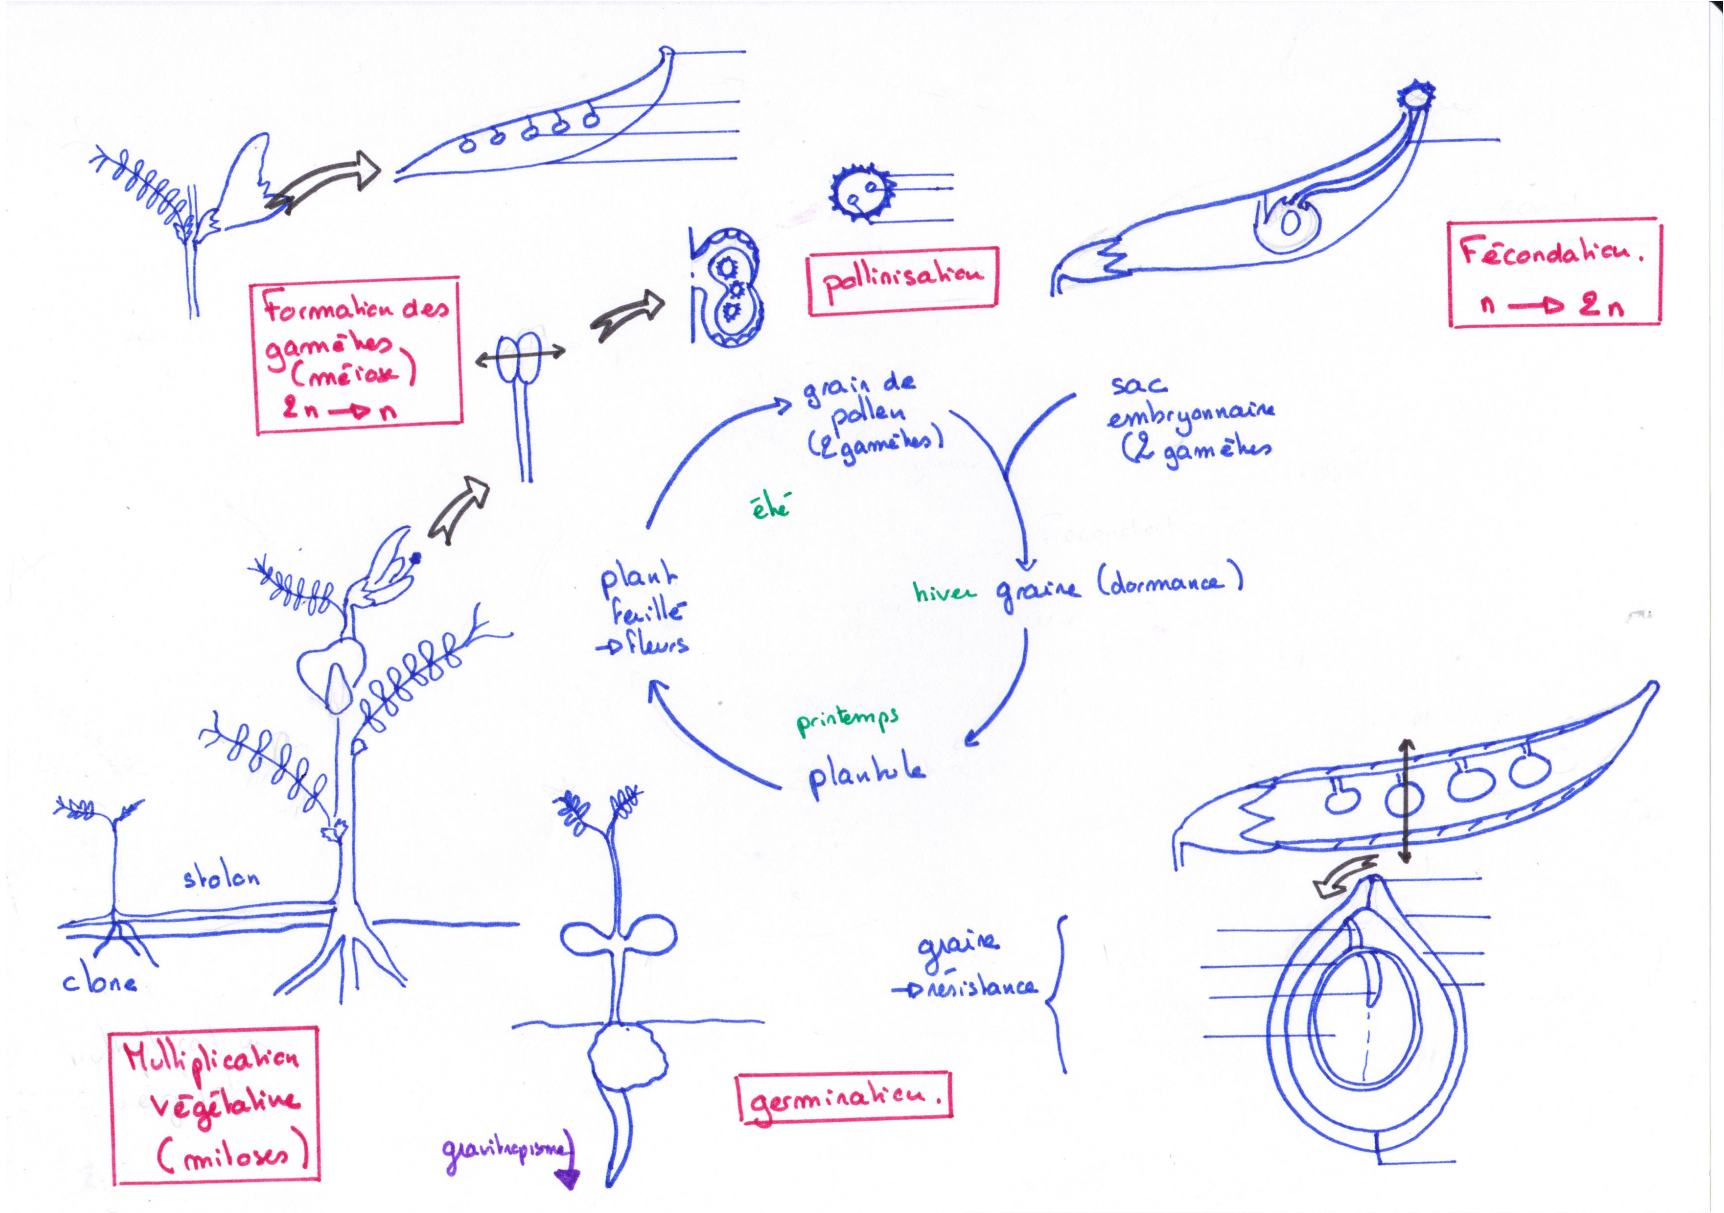 Formation des
gamètes
(méiose)
2n → n
pollinisation
Fécondation.
n → 2n
grain de
pollen
(2 gamètes)
sac
embryonnaire
(2 gamètes
été
plant
feuillé
→ fleurs
hiver graine (dormance)
printemps
plantule
stolon
clone
graine
→ résistance
Multiplication
végétative
(mitoses)
germination.
gravitropisme